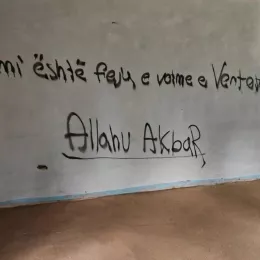 mi është feja e vetme e Vertet
Allahu AkbaR